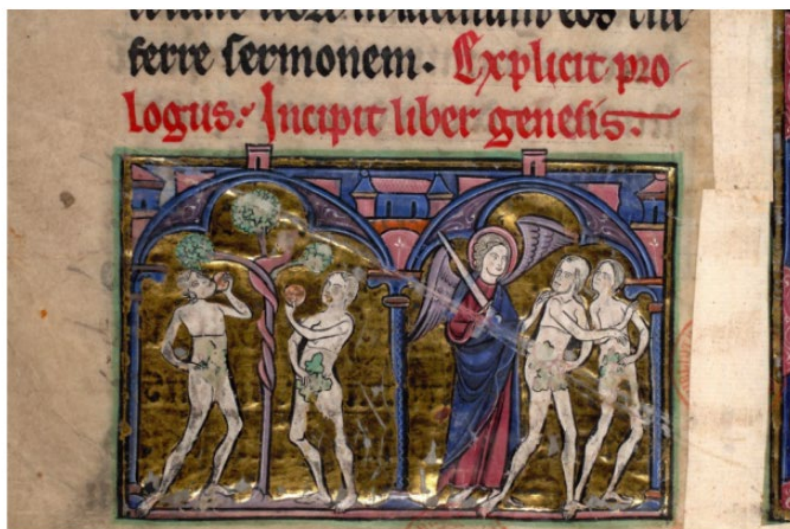 ferre sermonem. Explicit pro
logus. Incipit liber genesis.